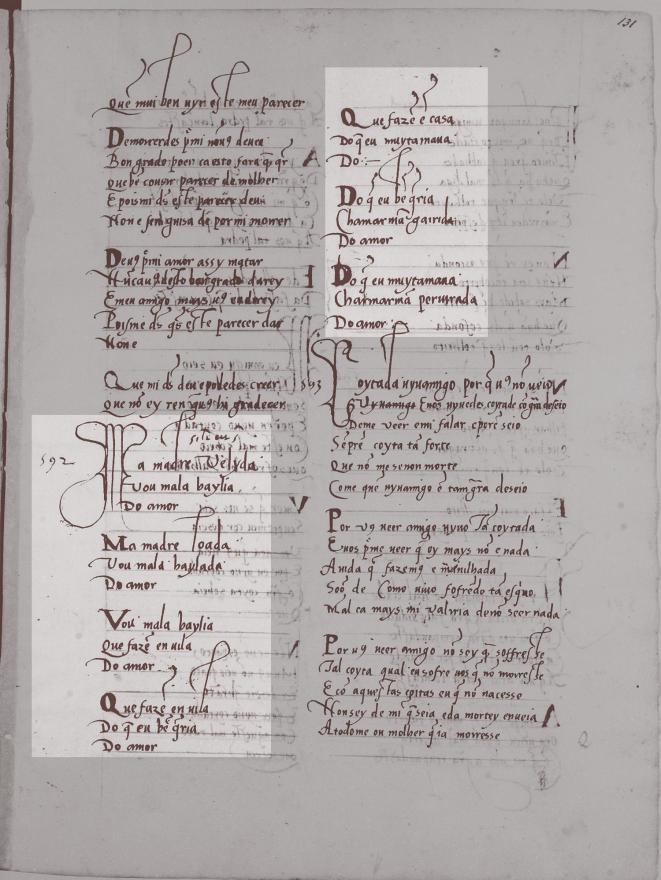 131
Que mui ben uyn este meu parecer
Demorrerdes pmi nou9 deuea
Bon grado poen ca esto fara q̄ q̄r
que bē conuē parecer de molher
E poismi d̄s este parecer deu
Non e
Deu9 pmi amor assy matar
E meu amigo mays u9 en direy
Poisme d̄s q̄s este parecer dar
Non e
Que mi d̄s deu epodedes creer
que nō ey ren q̄ u9 hi gradecer
592
Ma madre velyda
Vou mala baylia
Do amor
Ma madre loada
Vou mala baylada
Do amor
Vou mala baylia
Que fazē en uila
Do amor
Que fazē en uila
Do q̄ eu bē q̄ria
Do amor
Que fazē e casa
Do q̄ eu muytamaua
Do
Do q̄ eu bē q̄ria
Chamarmā garrida
Do amor
Do q̄ eu muytamaua
Chamarmā periurada
Do amor
593
Coytada uyuamigo por q̄ u9 nō ueio
E uos uyuedes coytade cō grā deseio
Deme veer e mi falar e porē seio
Sēpre coyta tā forte
Que nō me senon morte
Come que uyuamigo ē tam grā deseio
Por u9 ueer amigo uyuo tā coytada
E uos pme veer q̄ oy mays nō e nada
A uida q̄ fazem9 e mauilhada
Soō de Como uiuo sofrēdo tā esquo
Mal ca mays mi valiria denō seer nada
Por u9 ueer amigo nō sey q̄ soffresse
Tal coyta qual eu sofre uos q̄ nō moiresse
E cō aquestas coitas eu q̄ nō nacesse
Non sey de mi q̄ seia, eda mortey enueia
A todome ou molher q̄ ia morresse